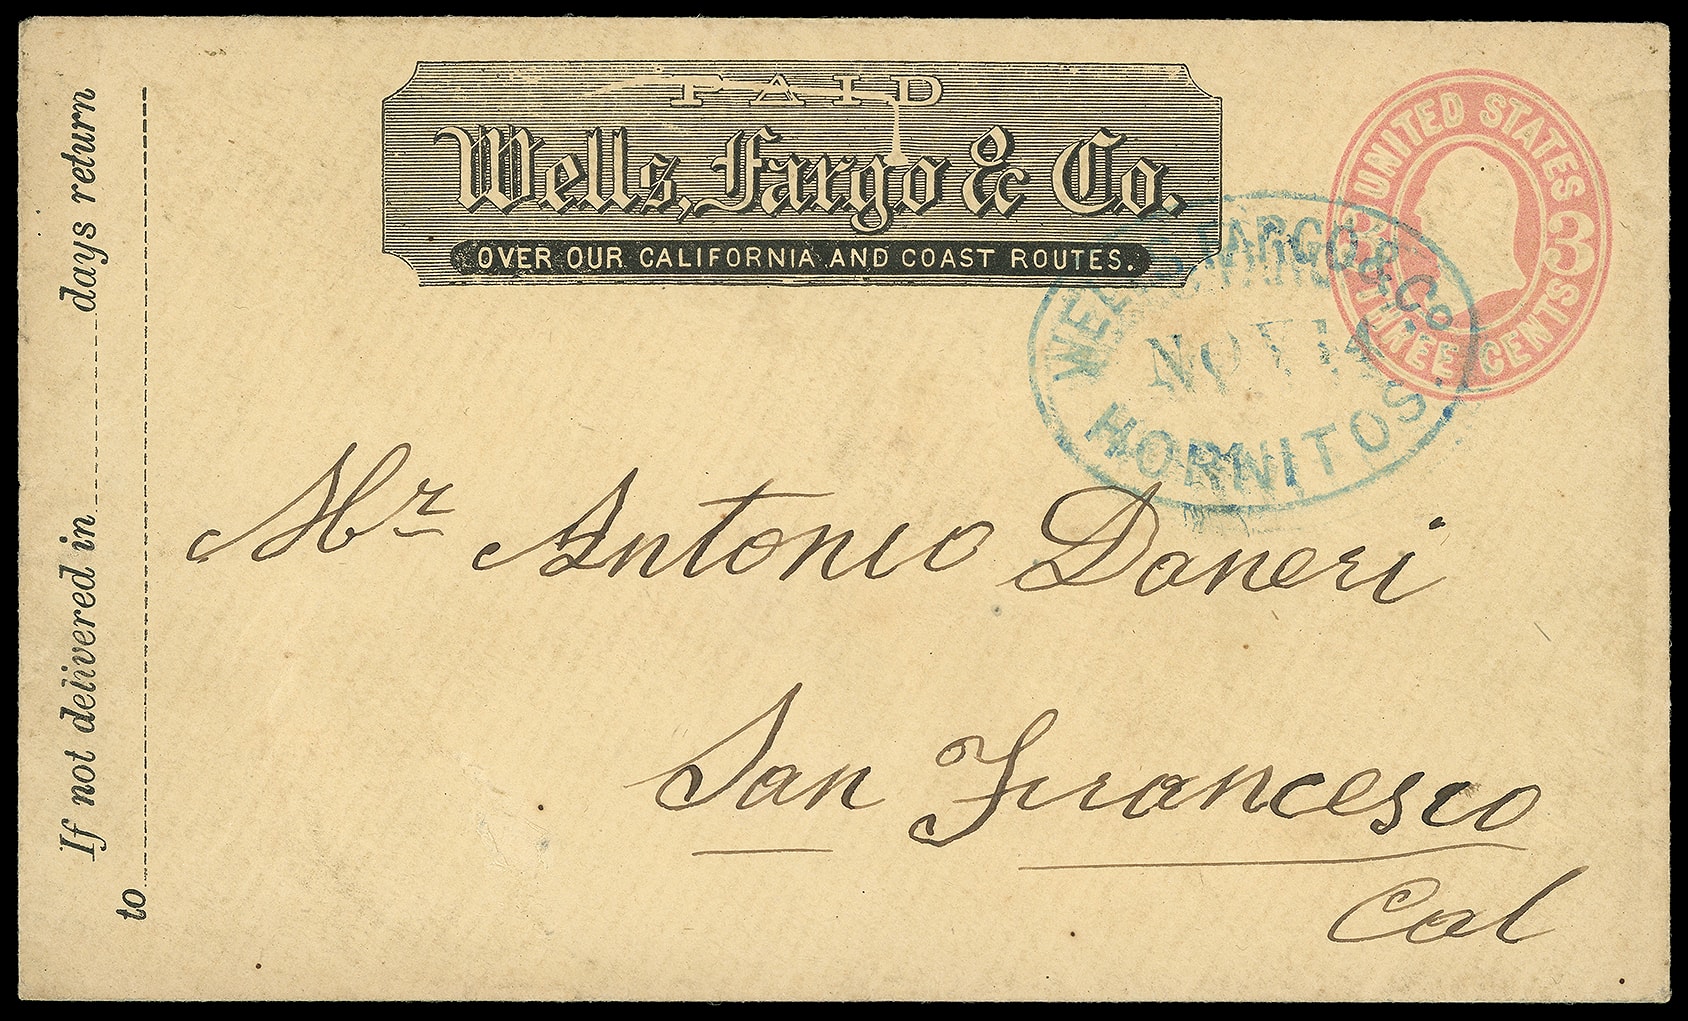 If not delivered in days return
to
PAID
Wells, Fargo & Co.
OVER OUR CALIFORNIA AND COAST ROUTES.
UNITED STATES
3 3
THREE CENTS
WELLS, FARGO & Co
NOV
HORNITOS.
Mr Antonio Daneri
San Francesco
Cal